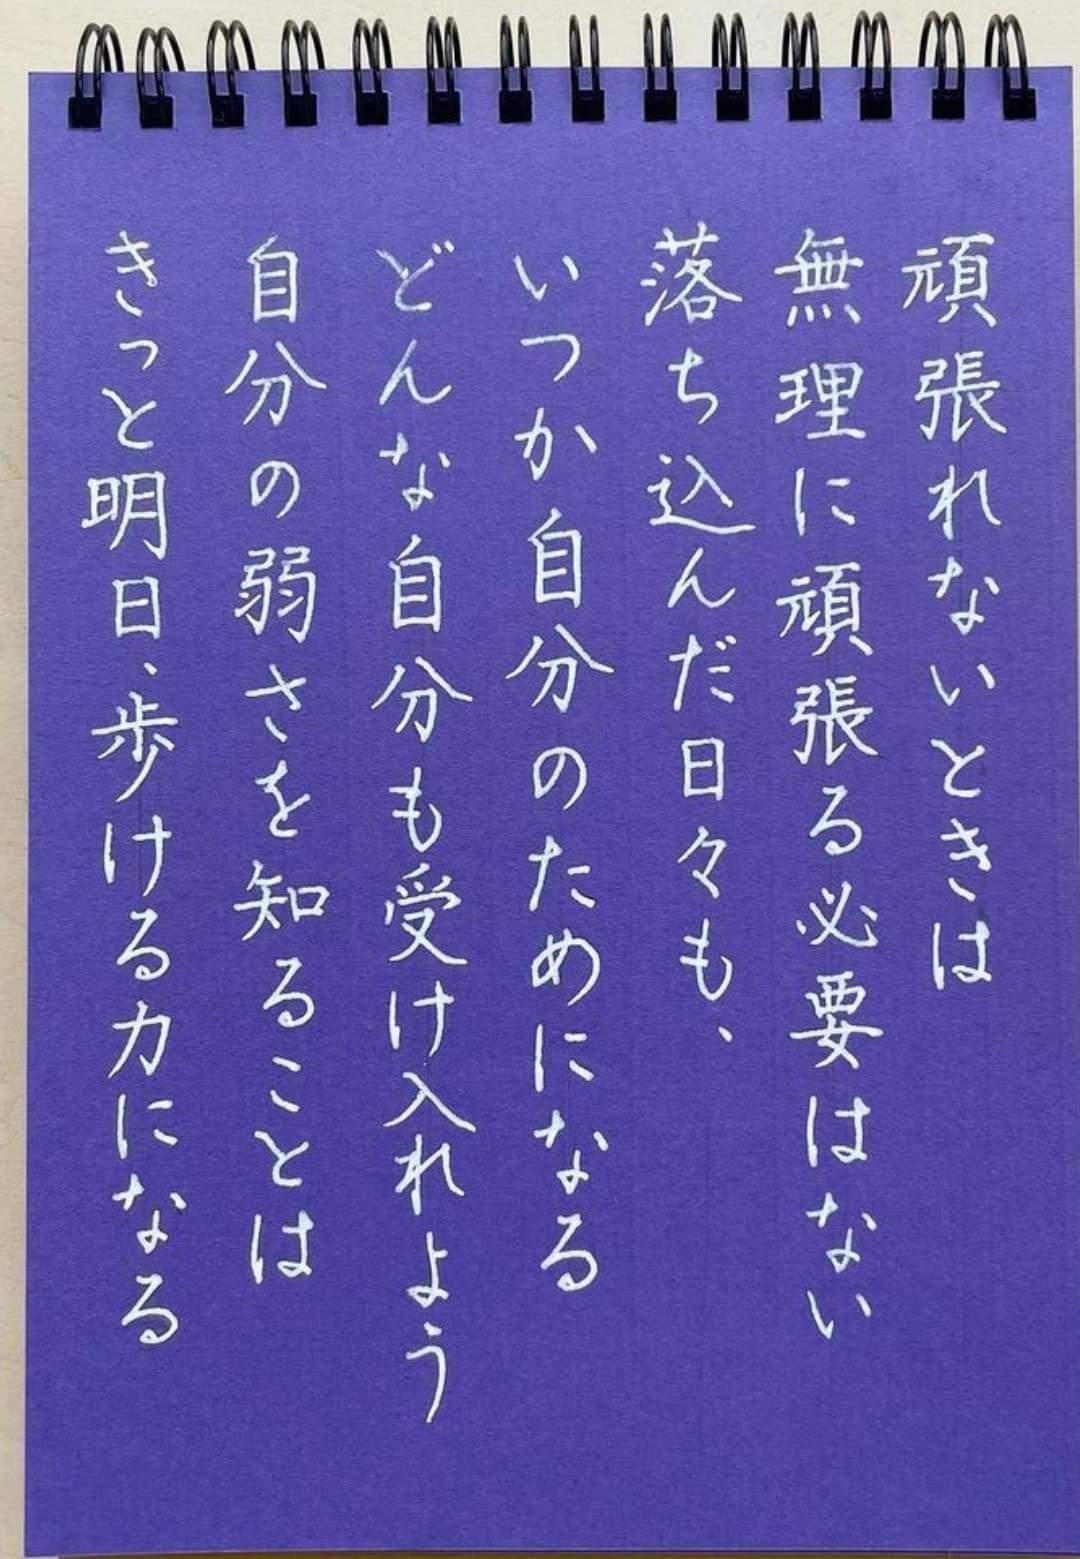 頑張れないときは
無理に頑張る必要はない
落ち込んだ日々も、
いつか自分のためになる
どんな自分も受け入れよう
自分の弱さを知ることは
きっと明日、歩ける力になる